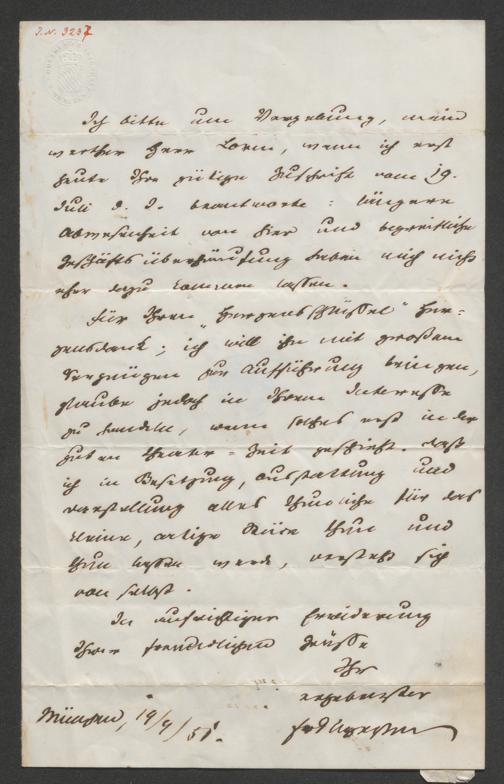 J. N. 3237
Ich bitte um Vergebung, mein
werther Herr Lorm, wenn ich erst
heute Ihre gütige Zuschrift vom 19.
Juli d. J. beantworte: längere
Abwesenheit von hier und begreifliche
Geschäftsüberhäufung haben mich nicht
eher dazu kommen lassen.
Für Ihren „Herzensschlüssel" Her-
zensdank; ich will ihn mit großem
Vergnügen zur Aufführung bringen,
glaube jedoch in Ihrem Interesse
zu handeln, wenn solches erst in der
guten Theater-Zeit geschieht. Daß
ich in Besetzung, Ausstattung und
Darstellung alles Thunliche für das
kleine, artige Stück thun und
thun lassen werde, versteht sich
von selbst.
In aufrichtiger Erwiderung
Ihrer freundlichen Grüße
Ihr
ergebenster
München, 19/9/51.